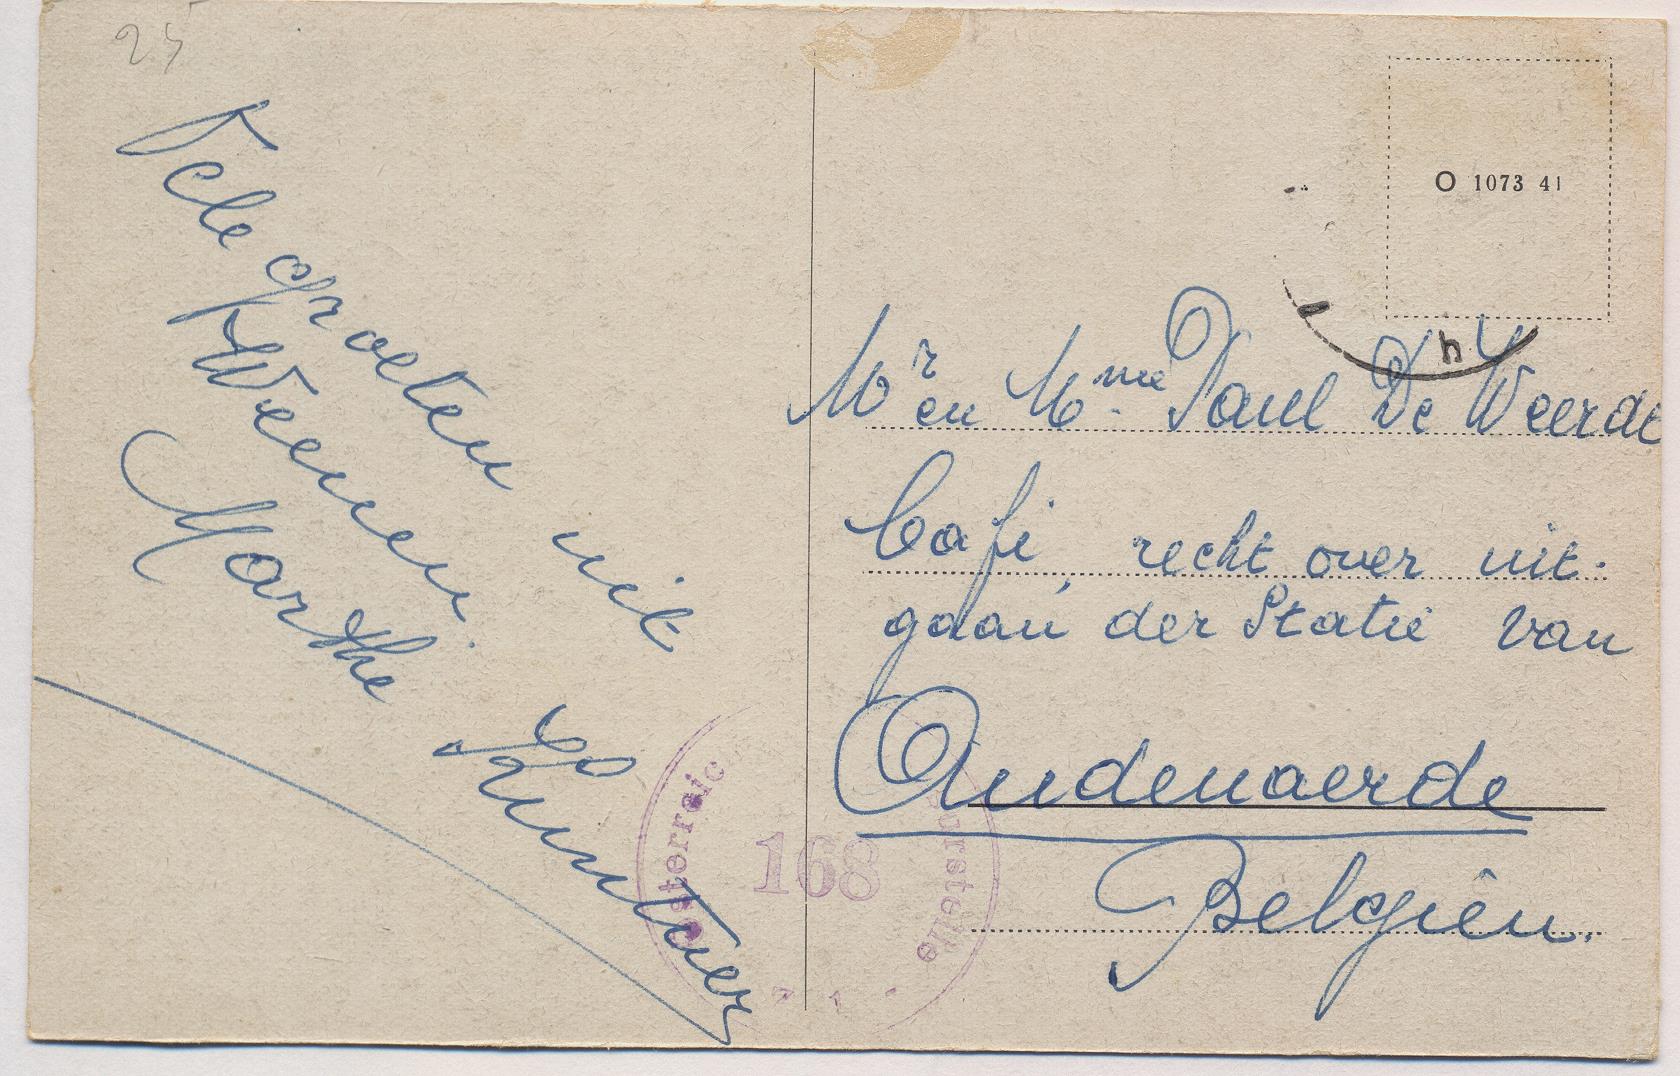 25
Vele groeten uit
Weenen.
Marthe
O 1073 41
h
Mr en Mme Paul De Weerdt
Café, recht over uit-
gaan der Statie van
Audenaerde
Belgiën.
168